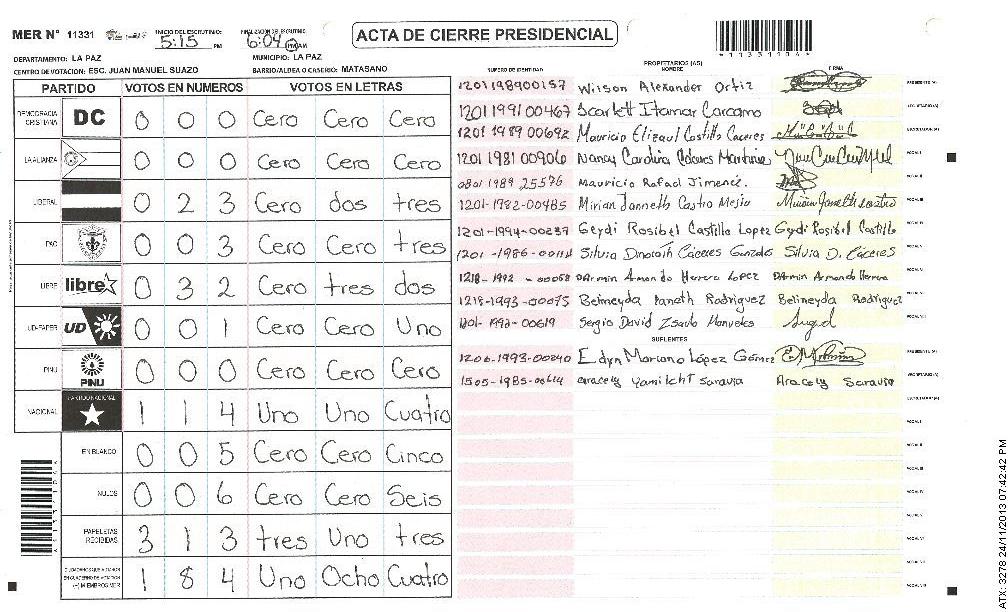 MER N° 11331 INICIO DEL ESCRUTINIO: 5:15 PM FINALIZACION DEL ESCRUTINIO: 6:04 PM AM
ACTA DE CIERRE PRESIDENCIAL
DEPARTAMENTO: LA PAZ MUNICIPIO: LA PAZ
CENTRO DE VOTACION: ESC. JUAN MANUEL SUAZO BARRIO/ALDEA O CASERIO: MATASANO
PARTIDO VOTOS EN NUMEROS VOTOS EN LETRAS
DEMOCRACIA CRISTIANA DC 0 0 0 Cero Cero Cero
LA ALIANZA 0 0 0 Cero Cero Cero
LIBERAL 0 2 3 Cero dos tres
PAC 0 0 3 Cero Cero tres
LIBRE libre 0 3 2 Cero tres dos
UD-FAPER UD 0 0 1 Cero Cero Uno
PINU PINU 0 0 0 Cero Cero Cero
NACIONAL PARTIDO NACIONAL 1 1 4 Uno Uno Cuatro
EN BLANCO 0 0 5 Cero Cero Cinco
NULOS 0 0 6 Cero Cero Seis
PAPELETAS RECIBIDAS 3 1 3 tres Uno tres
CIUDADANOS QUE VOTARON EN CUADERNO DE VOTACION (+) MIEMBROS MER 1 8 4 Uno Ocho Cuatro
PROPIETARIOS (AS)
NUMERO DE IDENTIDAD NOMBRE FIRMA
1201198900157 Wilson Alexander Ortiz
1201 1991 00467 Scarlett Itamar Carcamo
1201 1989 00692 Mauricio Castillo Caceres
1201 1981 00906 Nancy Carolina Martinez
0801 1989 25576 Mauricio Rafael Jimenez.
1201-1982-00485 Mirian Janneth Castro Mejia
1201-1994-00237 Geydi Rosibel Castillo Lopez Geydi Rosibel Castillo
1201-1986-00114 Silvia Dinorath Cáceres Silvia D. Cáceres
1218-1992-00058 Darmin Amando Herrera Lopez Darmin Armando Herrera
1218-1993-00075 Belmeyda Rodriguez Belineyda Rodriguez
1201-1992-00619 Sergio David
SUPLENTES
1206-1993-00240 Edyn Mariano López Gómez
1505-1985-00614 aracely Saravia Aracely Saravia
ATX: 3278 24/11/2013 07:42:42 PM